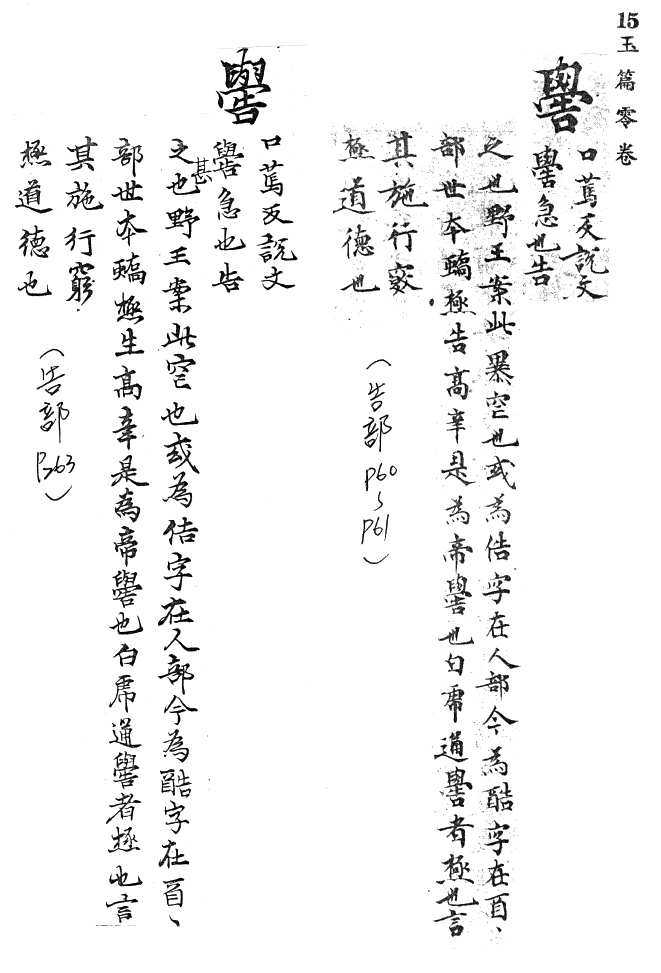 15 玉篇零卷
嚳
口萬反說文
嚳急也告
之也野王案此暴空也或為俈字在人部今為酷字在酉、
部世本蟜極告髙辛是為帝嚳也白虎通嚳者極也言
其施行窮
極道德也
（告部 P60~P61）
嚳
口萬反說文
嚳急也告
甚
之也野王案此空也或為俈字在人部今為酷字在酉、
部世本蟜極生髙辛是為帝嚳也白虎通嚳者極也言
其施行窮
極道徳也
（告部 P263）